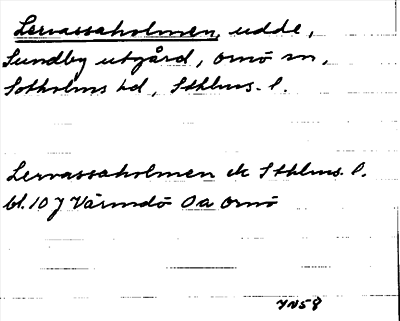 Lervassaholmen, udde,
Sundby utgård, Ornö sn,
Sotholms hd, Sthlms. l.
Lervassaholmen ek Sthlms. l.
bl. 10 J Värmdö Oa Ornö
JN58